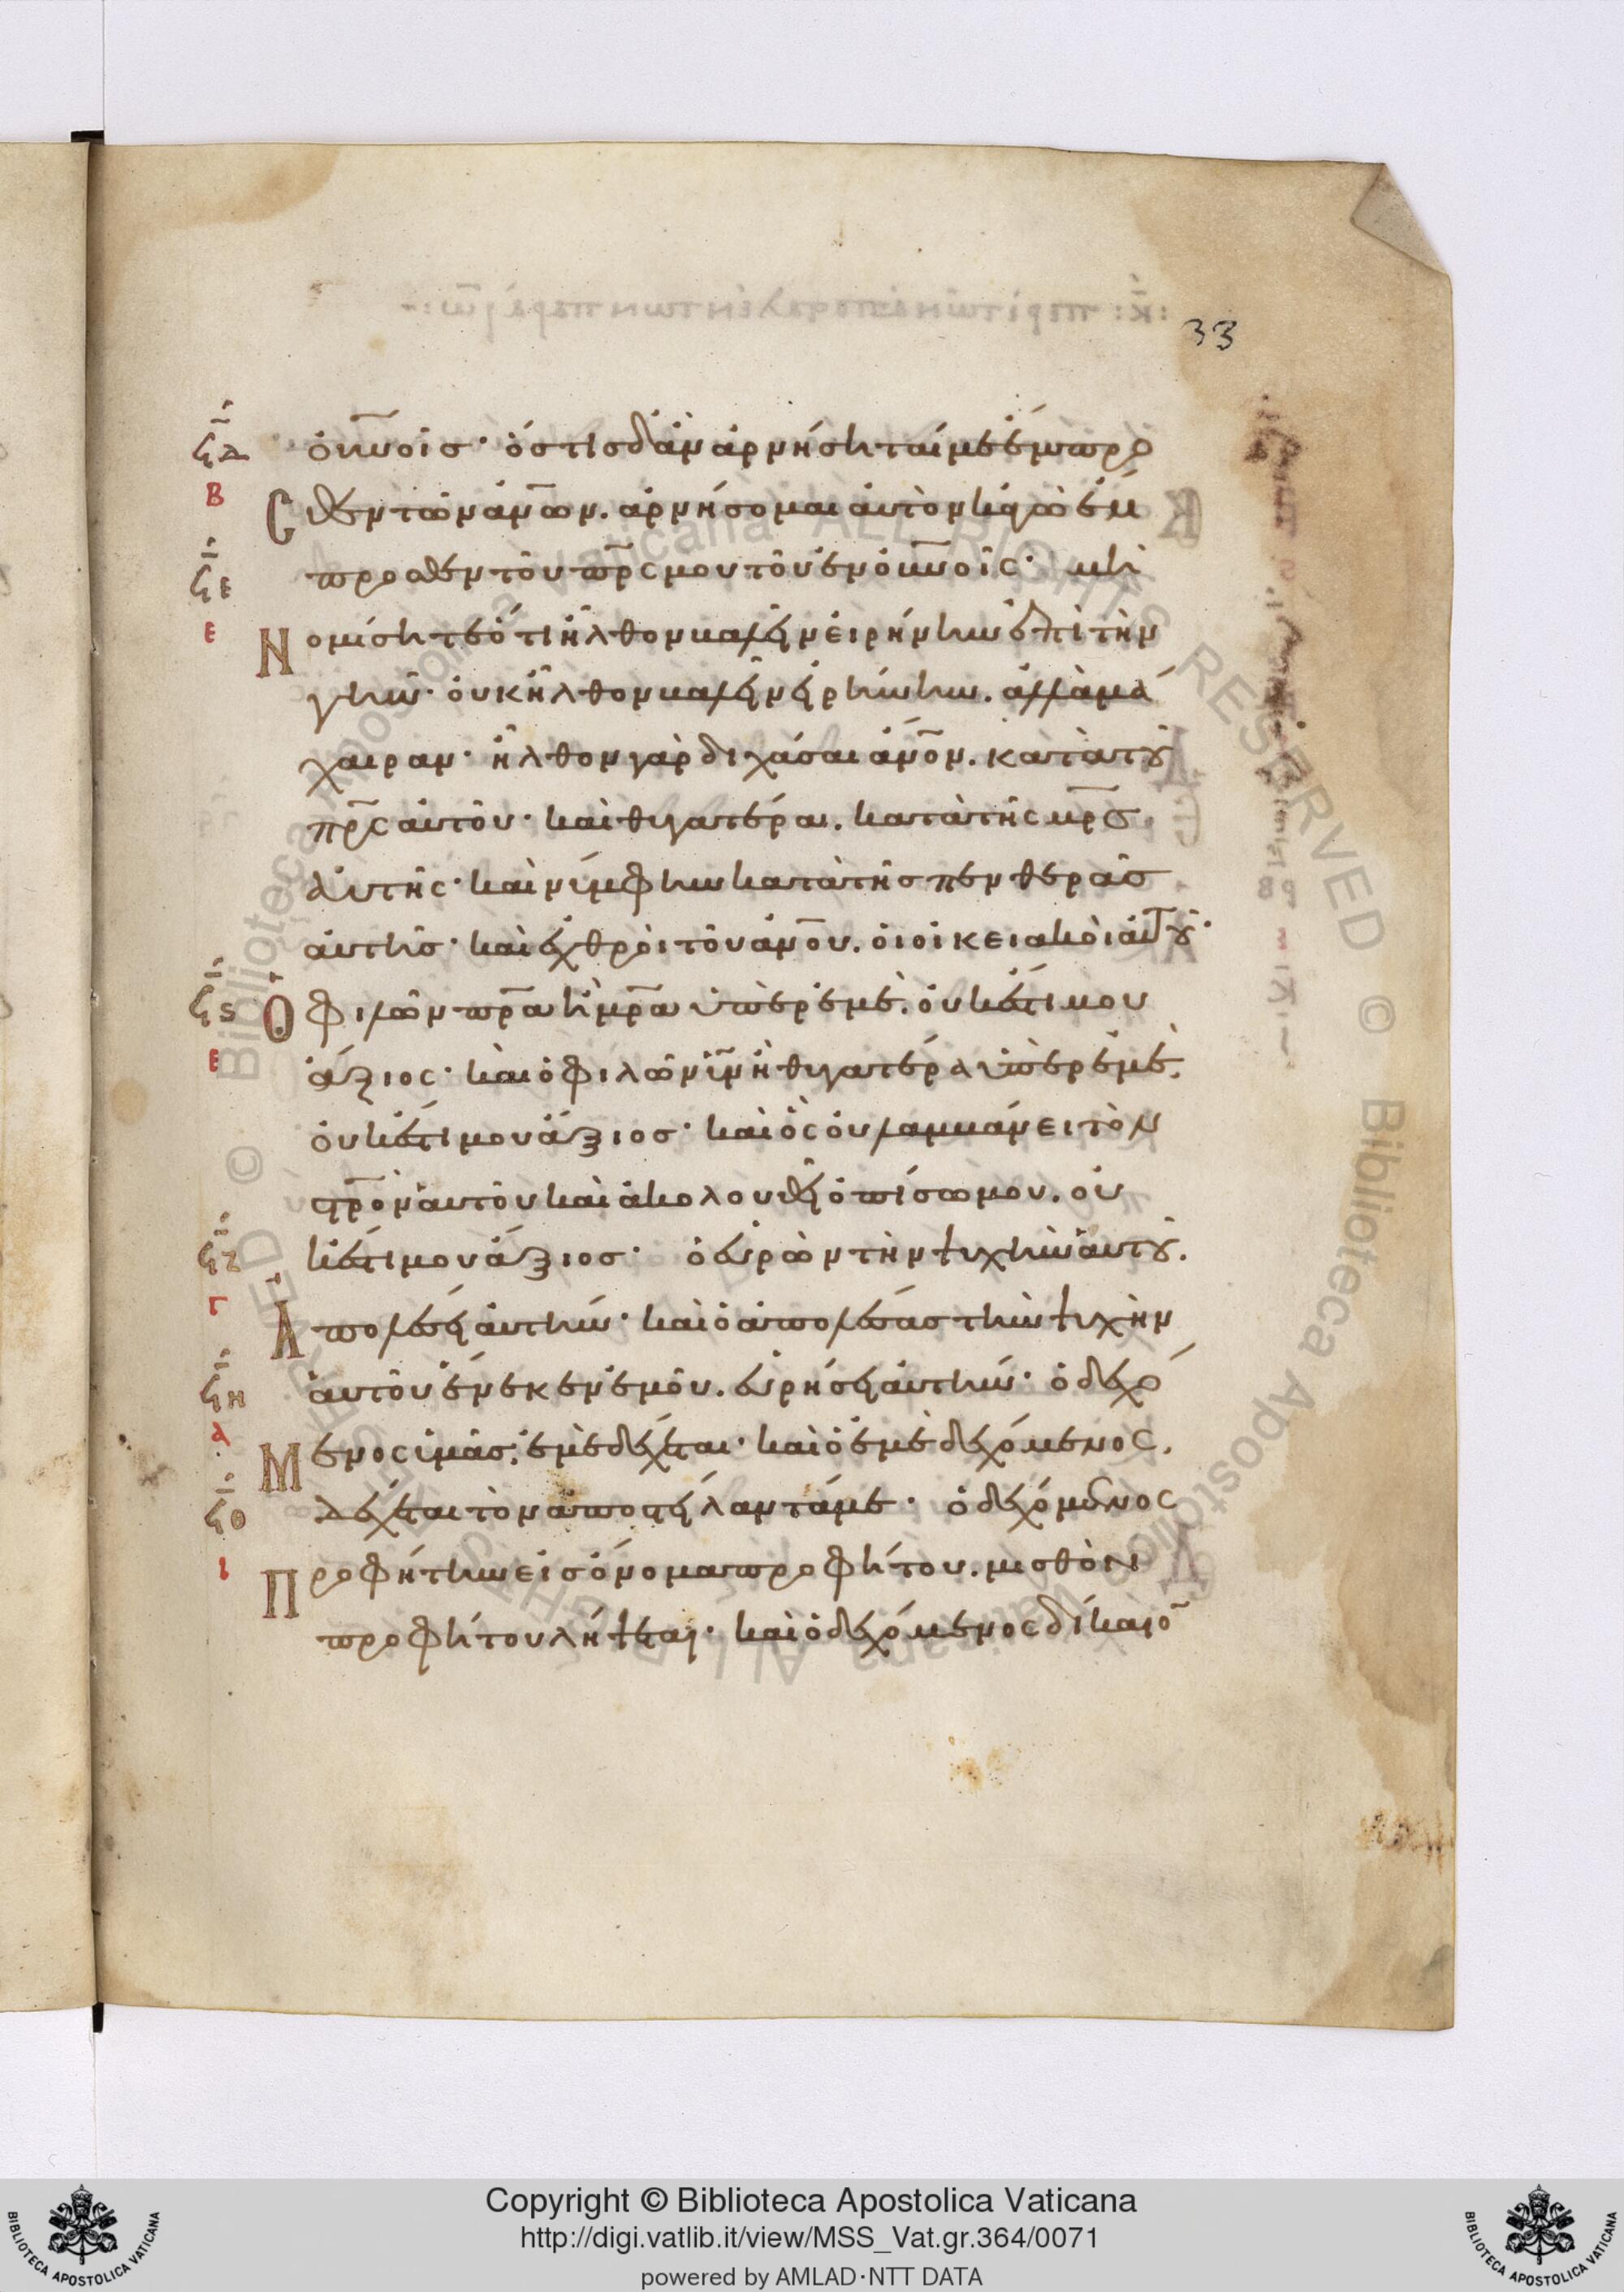 33
ϟδ
ὀυνοῖσ· ὅστισ δ' ἂν ἀρνήσηταί με ἔμπρο
Β
Cθεν τῶν ἀνων. ἀρνήσομαι ἀυτὸν κἀγὼ ἔμ
ϟε
προσθεν τοῦ πρς μου τοῦ ἐν ὀυνοῖς· μὴ
Ε
Νομίσητε ὅτι ἦλθον βαλεῖν εἰρήνην ἐπὶ τὴν
γῆν· ὀυκ ἦλθον βαλεῖν εἰρήνην. ἀλλὰ μά
χαιραν· ἦλθον γὰρ διχάσαι ἀνον. κατὰ τοῦ
πρς ἀυτοῦ· καὶ θυγατέρα. κατὰ τῆς μρσ
ἀυτῆς· καὶ νύμφην κατὰ τῆσ πενθερᾶσ
ἀυτῆσ· καὶ ἐχθροὶ τοῦ ἀνου. ὁι ὀικειακοὶ ἀυτοῦ·
ϟϛ
Ὁ φιλῶν πρα ἢ μρα ὑπὲρ ἐμὲ. ὀυκ ἔστι μου
Ε
ἄξιος· καὶ ὁ φιλῶν υν ἢ θυγατέρα ὑπὲρ ἐμὲ.
ὀυκ ἔστι μου ἄξιοσ· καὶ ὃς ὀυ λαμβάνει τὸν
στρον ἀυτοῦ καὶ ἀκολουθεῖ ὀπίσω μου. ὀυ
ϟζ
κ ἔστι μου ἄξιοσ· ὁ ἑυρὼν τὴν ψυχὴν ἀυτοῦ.
Γ
Ἀπολέσει ἀυτήν· καὶ ὁ ἀπολέσασ τὴν ψυχὴν
ϟη
ἀυτοῦ ἕνεκεν ἐμοῦ. ἑυρήσει ἀυτήν· ὁ δεχό
Α
Μενος ὑμᾶσ. ἐμὲ δέχεται· καὶ ὁ ἐμὲ δεχόμενος.
ϟθ
δέχεται τὸν ἀποστείλαντά με· ὁ δεχόμενος
Ι
Προφήτην εἰσ ὄνομα προφήτου. μισθὸν
προφήτου λήψεται· καὶ ὁ δεχόμενος δίκαιο
Copyright © Biblioteca Apostolica Vaticana
http://digi.vatlib.it/view/MSS_Vat.gr.364/0071
powered by AMLAD·NTT DATA
BIBLIOTECA APOSTOLICA VATICANA
BIBLIOTECA APOSTOLICA VATICANA